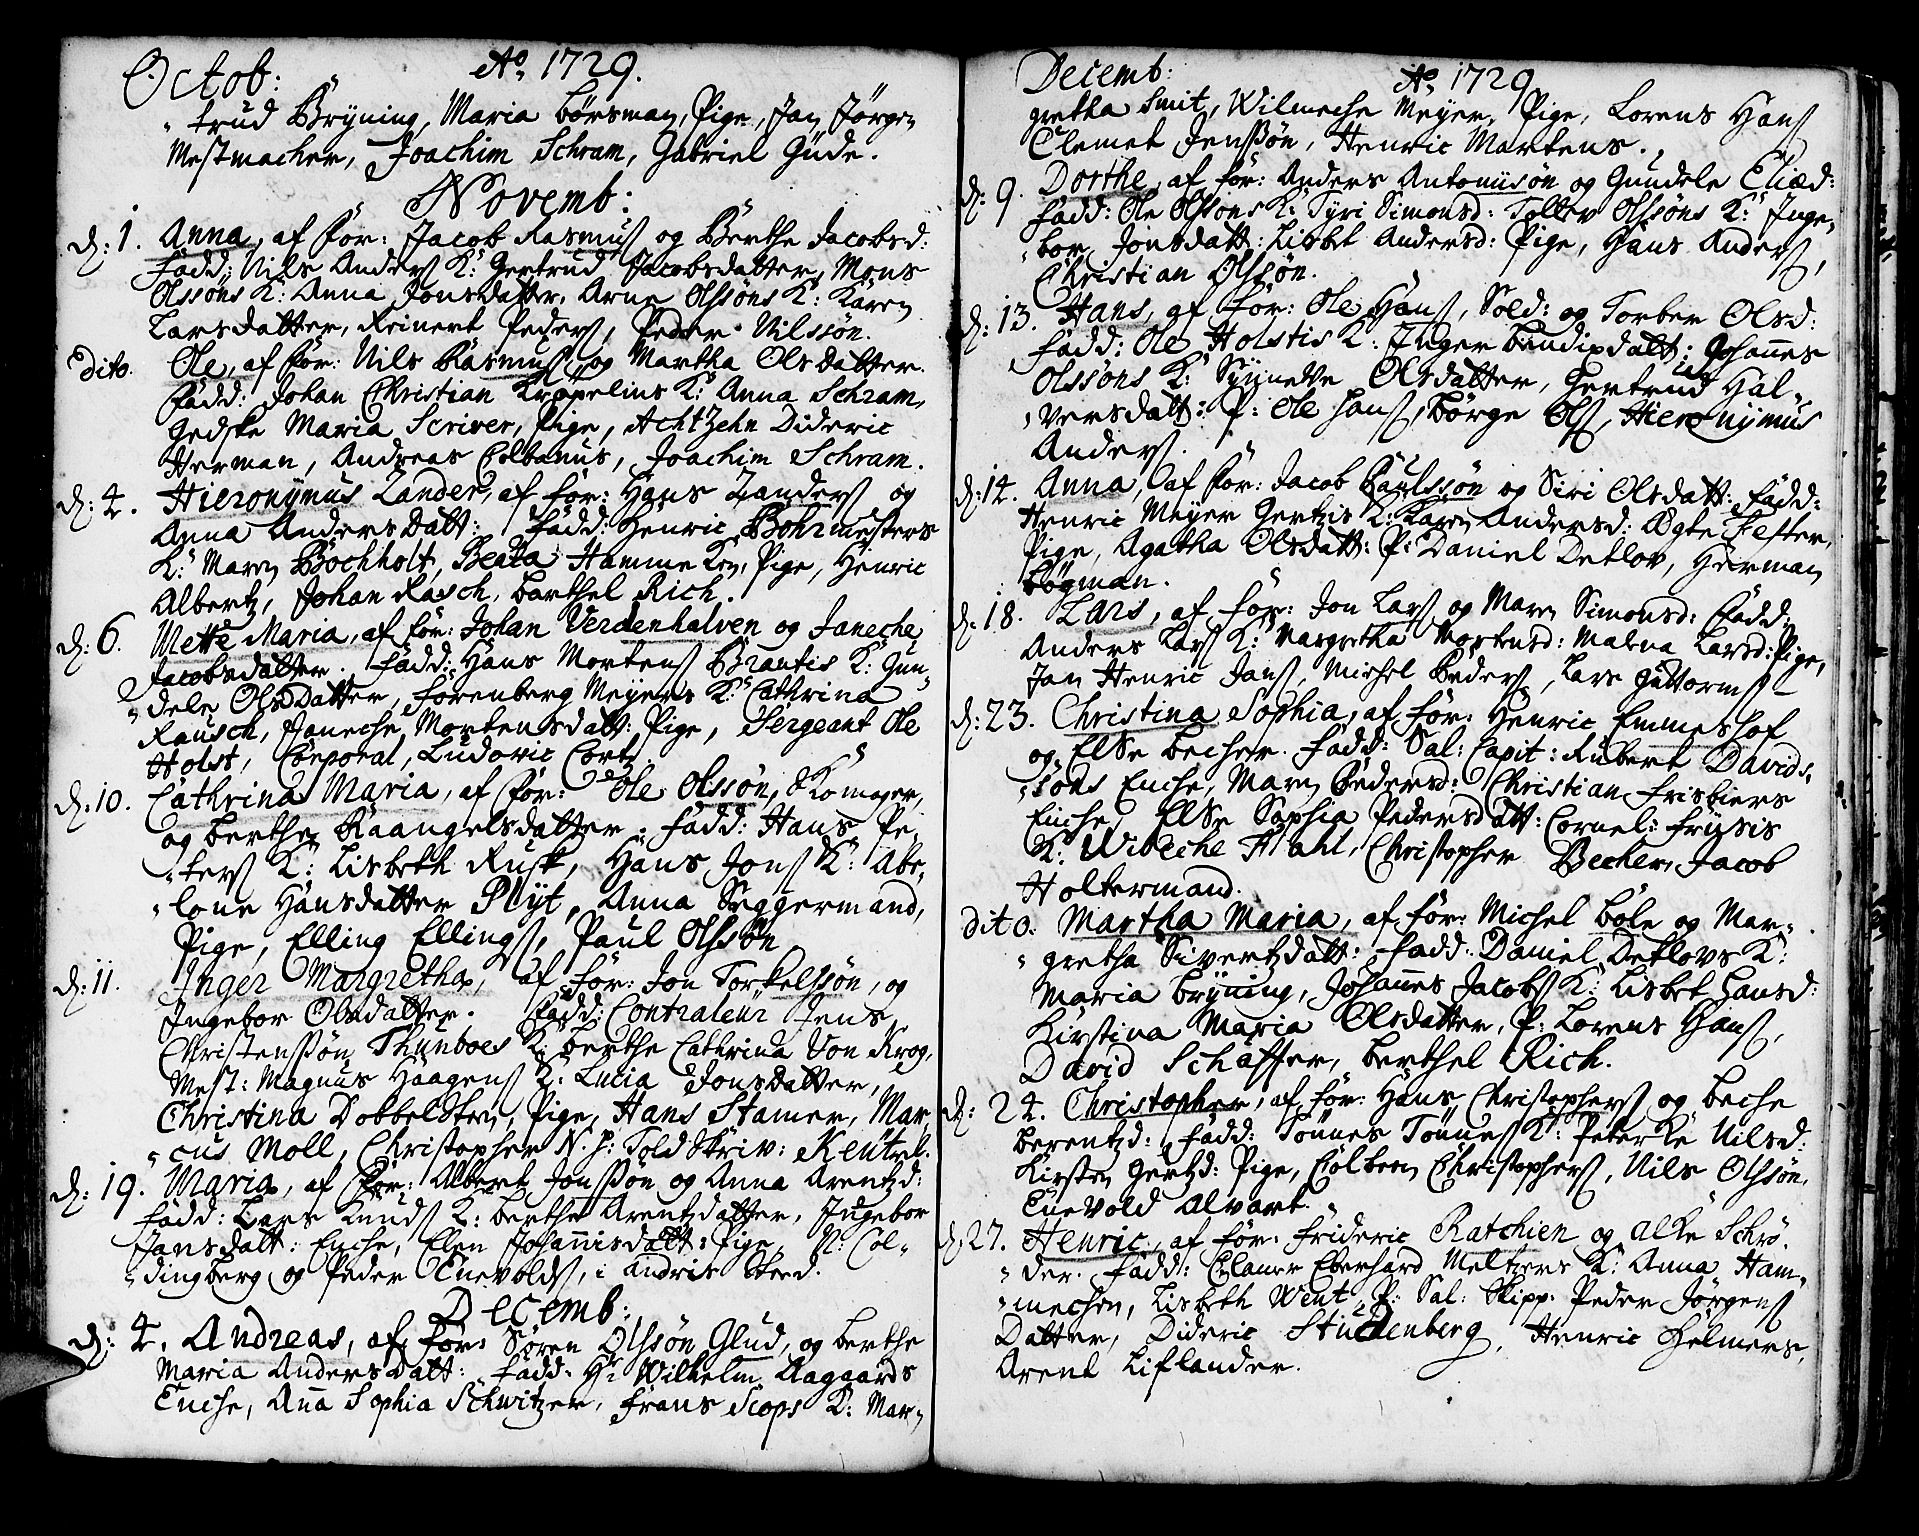 Octob: Aº 1729.
trud Brÿning, Maria Börsman, Pige, Jan Jörgen
Mestmacher, Joachim Schram, Gabriel Güde.
Novemb:
d: 1. Anna, af for: Jacob Rasmus og Berthe Jacobsd:
fadd: Nils Anders K: Gertrud Jacobsdatter, Mons
Olssöns K: Anna Jonsdatter, Arne Olssöns K: Karen
Larsdatter, Reinert Peders, Peder Nilssön.
dito. Ole, af for: Nils Rasmus og Martha Olsdatter.
fadd: Johan Christian Kröpelins K: Anna Schram,
Gedske Maria Scriver, Pige, Achtzehn Dideric
Herman, Andreas Colbanus, Joachim Schram.
d: 4. Hieronÿmus Zander, af for: Hans Zanders og
Anna Andersdatt: fadd: Henric Bohrmesters
K: Maren Bochholt, Beata Hammeken, Pige, Henric
Albertz, Johan Rasch, Barthel Rich.
d: 6. Mette Maria, af for: Johan Verdenhalven og Janeche
Jacobsdatter. fadd: Hans Mortens Brantis K: Gun-
dele Olsdatter, Förenberg Meÿers K: Cathrina
Rausch, Janeche Mortensdatt: Pige, Sergeant Ole
Holst, Corporal, Ludovic Cortz.
d: 10. Cathrina Maria, af for: Ole Olssön, Skomager,
og Berthe Raangelsdatter. fadd: Hans Pe-
ters K: Lisbeth Rusk, Hans Jons K: Abe-
lone Hansdatter Plÿt, Anna Seggermand,
Pige, Elling Ellings, Paul Olssön
d: 11. Inger Margretha, af for: Jon Torkelssön, og
Ingebor Olsdatter. fadd: Contraleur Jens
Christenssön Thunboes K: Berthe Cathrina Von Krog,
Mest: Magnus Haagens K: Lucia Jonsdatter,
Christina Dobbelsteen, Pige, Hans Stamer, Mar-
cus Moll, Christopher N. p: Toldskriv: Keutel.
d: 19. Maria, af for: Albert Jonssön og Anna Arentzd:
fadd: Lars Knuds K: Berthe Arentzdatter, Ingebor
Jansdatt: Enche, Elen Johannisdatt: Pige, N: Col-
dingberg og Peder Enevolds, i andris sted.
Decemb:
d: 4. Andreas, af for: Sören Olssön Glud, og Berthe
Maria Andersdatt: fadd: Hr Wilhelm Aagaards
Enche, Aña Sophia Schwitzer, Frans Scops K: Mar-
Decemb: Aº 1729
gretha Smit, Wilmeche Meÿer, Pige, Lorens Hans
Clemet Jenssön, Henric Martens.
d: 9. Dorthe, af for: Anders Antoniisön og Gundele Eliæd:
fadd: Ole Olssöns K: Sÿri Simonsd: Tollev Olssöns K: Inge-
bor Jonsdatt: Lisbet Andersd: Pige, Hans Anders,
Christian Olssön.
d: 13. Hans, af for: Ole Hans, Sold: og Torber Olsd:
fadd: Ole Holstis K: Inger Bendixdatt: Johañes
Olssöns K: Sÿnneve Olsdatter, Gertrud Hal-
versdatt: P: Ole Hans, Börge Ols, Hieronÿmus
Anders.
d: 14. Anna, af for: Jacob Paulssön og Siri Olsdatt: fadd:
Henric Meÿer Gertzis K: Karen Andersd: Ægte Fester,
Pige, Agatha Olsdatt: P: Daniel Detlov, Herman
Bögman.
d: 18. Lars, af for: Jon Lars og Maren Simonsd: fadd:
Anders Lars K: Margretha Mortensd: Malena Larsd: Pige,
Jan Henric Jans, Michel Peders, Lars Guttorms
d: 23. Christina Sophia, af for: Henric Emmeshof
og Else Becher. fadd: Sal: Capit: Rubert Davids-
sons Enche, Maren Pedersd: Christian Frisbiers
Enche, Else Sophia Pedersdatt: Cornel: Frÿsis
K: Wibeche Stahl, Christopher Becher, Jacob
Holtermand.
dito. Martha Maria, af for: Michel Böle og Mar-
gretha Sivertzdatt: fadd: Daniel Detlovs K:
Maria Brÿning, Johañes Jacobs K: Lisbet Hansd:
Kirstina Maria Olsdatter, P: Lorens Hans,
David Schäffer, Berthel Rich.
d: 24. Christopher, af for: Hans Christophers og Beche
Berentzd: fadd: Tönnes Tönnes K: Peterke Nilsd:
Kirsten Gertzd: Pige, Colben Christophers, Nils Olssön,
Enevold Alvart.
d: 27. Henric, af for: Frideric Ratchien og Alke Schrö-
der. fadd: Claner Eberhard Meltzers K: Anna Ham-
mechen, Lisbeth Went, P: Sal: Skipp: Peder Jörgens
Datter, Dideric Studenberg, Henric Helmers,
Arent Liflander.